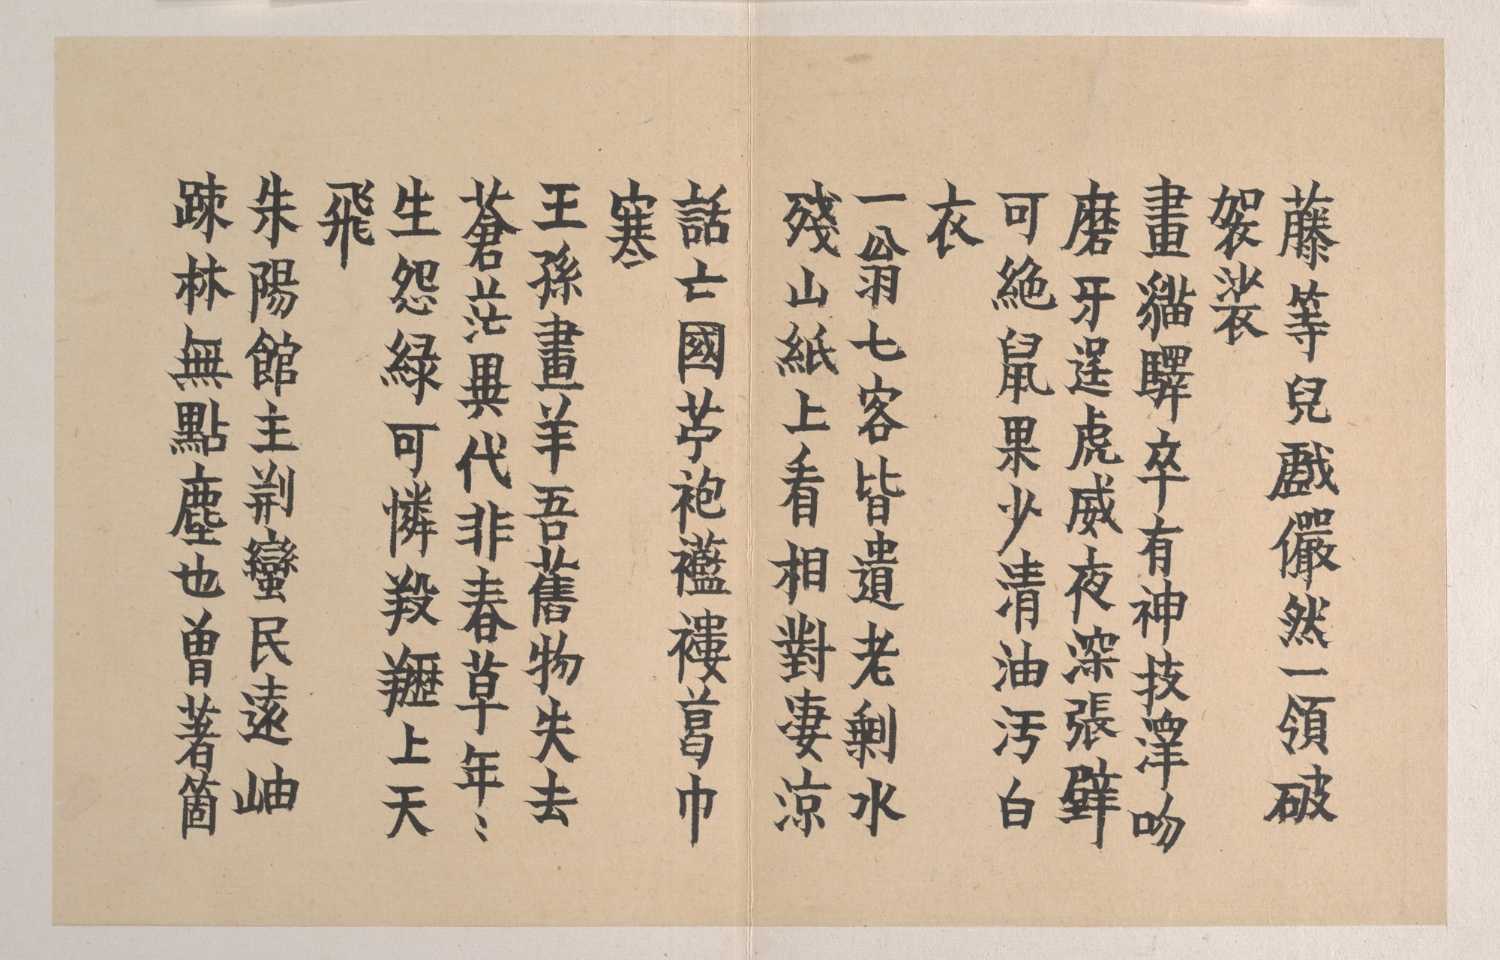 藤等兒戲儼然一領破
袈裟
畫貓驛卒有神技澤吻
磨牙逞虎威夜深張壁
可絕鼠果少清油汚白
衣
一翁七客皆遺老剩水
殘山紙上看相對淒涼
話亡國苧袍襤褸葛巾
寒
王孫畫羊吾舊物失去
蒼茫異代非春草年〻
生怨綠可憐羖䍽上天
飛
朱陽館主荊蠻民遠岫
疎林無點塵也曾著箇